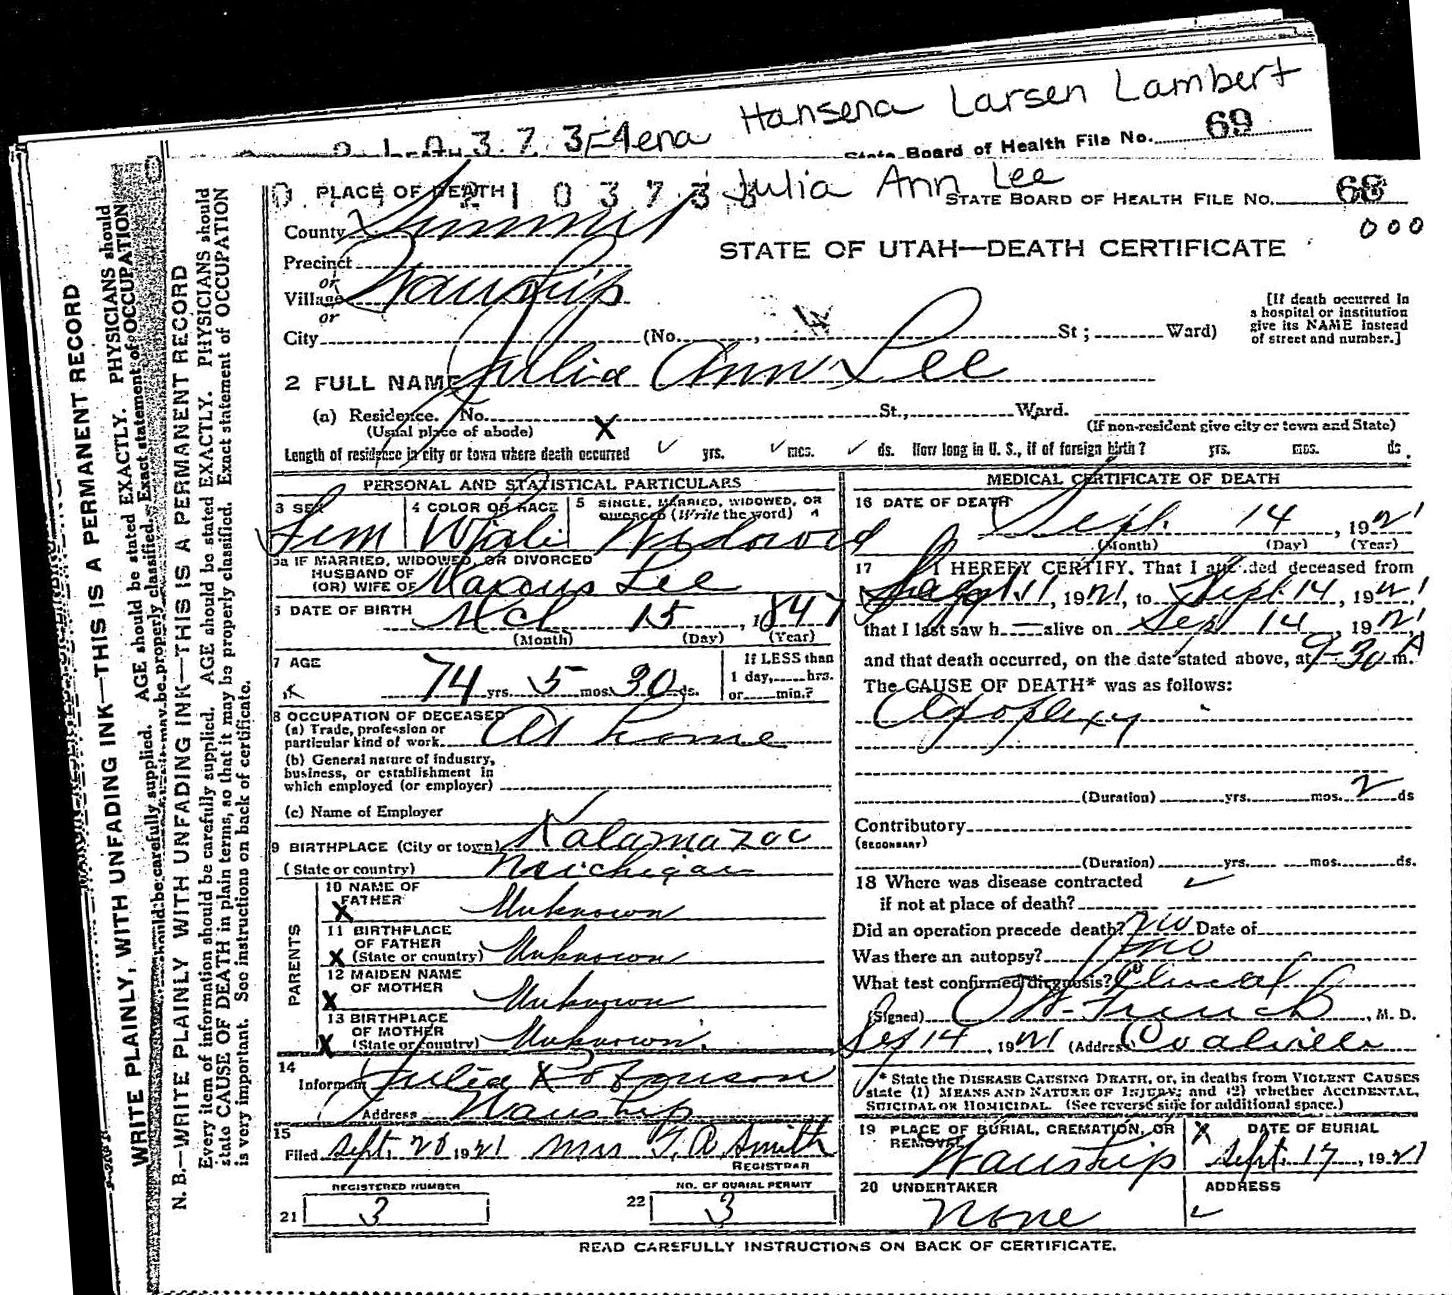 Hansena Larsen Lambert
State Board of Health File No. 69
Julia Ann Lee
PLACE OF DEATH
STATE BOARD OF HEALTH FILE NO. 68
000
County Summit
STATE OF UTAH—DEATH CERTIFICATE
Precinct
or
Village Wanship
or
City (No. , St ; Ward)
[If death occurred in
a hospital or institution
give its NAME instead
of street and number.]
2 FULL NAME Julia Ann Lee
(a) Residence. No. St., Ward.
(Usual place of abode) X (If non-resident give city or town and State)
Length of residence in city or town where death occurred ✓ yrs. ✓ mos. ✓ ds. How long in U. S., if of foreign birth? yrs. mos. ds.
PERSONAL AND STATISTICAL PARTICULARS
3 SEX 4 COLOR OR RACE 5 SINGLE, MARRIED, WIDOWED, OR
DIVORCED (Write the word)
Fem White Widowed
5a IF MARRIED, WIDOWED, OR DIVORCED
HUSBAND OF
(OR) WIFE OF Marcus Lee
6 DATE OF BIRTH Mch 15, 1847
(Month) (Day) (Year)
7 AGE If LESS than
1 day, hrs.
74 yrs. 5 mos. 30 ds. or min.?
8 OCCUPATION OF DECEASED
(a) Trade, profession or
particular kind of work At home
(b) General nature of industry,
business, or establishment in
which employed (or employer)
(c) Name of Employer
9 BIRTHPLACE (City or town) Kalamazoo
(State or country) Michigan
PARENTS
10 NAME OF
FATHER X Unknown
11 BIRTHPLACE
OF FATHER
X (State or country) Unknown
12 MAIDEN NAME
OF MOTHER X Unknown
13 BIRTHPLACE
OF MOTHER
X (State or country) Unknown
14
Informant Julia Robinson
Address Wanship
15
Filed Sept. 20 1921 Mrs T. R. Smith
REGISTRAR
REGISTERED NUMBER NO. OF BURIAL PERMIT
21 3 22 3
MEDICAL CERTIFICATE OF DEATH
16 DATE OF DEATH Sept. 14, 1921
(Month) (Day) (Year)
17 I HEREBY CERTIFY, That I attended deceased from
Sept 11, 1921, to Sept 14, 1921
that I last saw h alive on Sep 14 1921
and that death occurred, on the date stated above, at 9-30 A m.
The CAUSE OF DEATH* was as follows:
Apoplexy
(Duration) yrs. mos. 2 ds
Contributory
(SECONDARY)
(Duration) yrs. mos. ds.
18 Where was disease contracted ✓
if not at place of death?
Did an operation precede death? no Date of
Was there an autopsy? no
What test confirmed diagnosis? Clinical
(Signed) , M. D.
Sep 14, 1921 (Address) Coalville
* State the DISEASE CAUSING DEATH, or, in deaths from VIOLENT CAUSES
state (1) MEANS AND NATURE OF INJURY; and (2) whether ACCIDENTAL,
SUICIDAL OR HOMICIDAL. (See reverse side for additional space.)
19 PLACE OF BURIAL, CREMATION, OR
REMOVAL X DATE OF BURIAL
Wanship Sept. 17, 1921
20 UNDERTAKER ADDRESS
None ✓
READ CAREFULLY INSTRUCTIONS ON BACK OF CERTIFICATE.
WRITE PLAINLY, WITH UNFADING INK—THIS IS A PERMANENT RECORD
N. B.—WRITE PLAINLY WITH UNFADING INK—THIS IS A PERMANENT RECORD
Every item of information should be carefully supplied. AGE should be stated EXACTLY. PHYSICIANS should
state CAUSE OF DEATH in plain terms, so that it may be properly classified. Exact statement of OCCUPATION
is very important. See instructions on back of certificate.